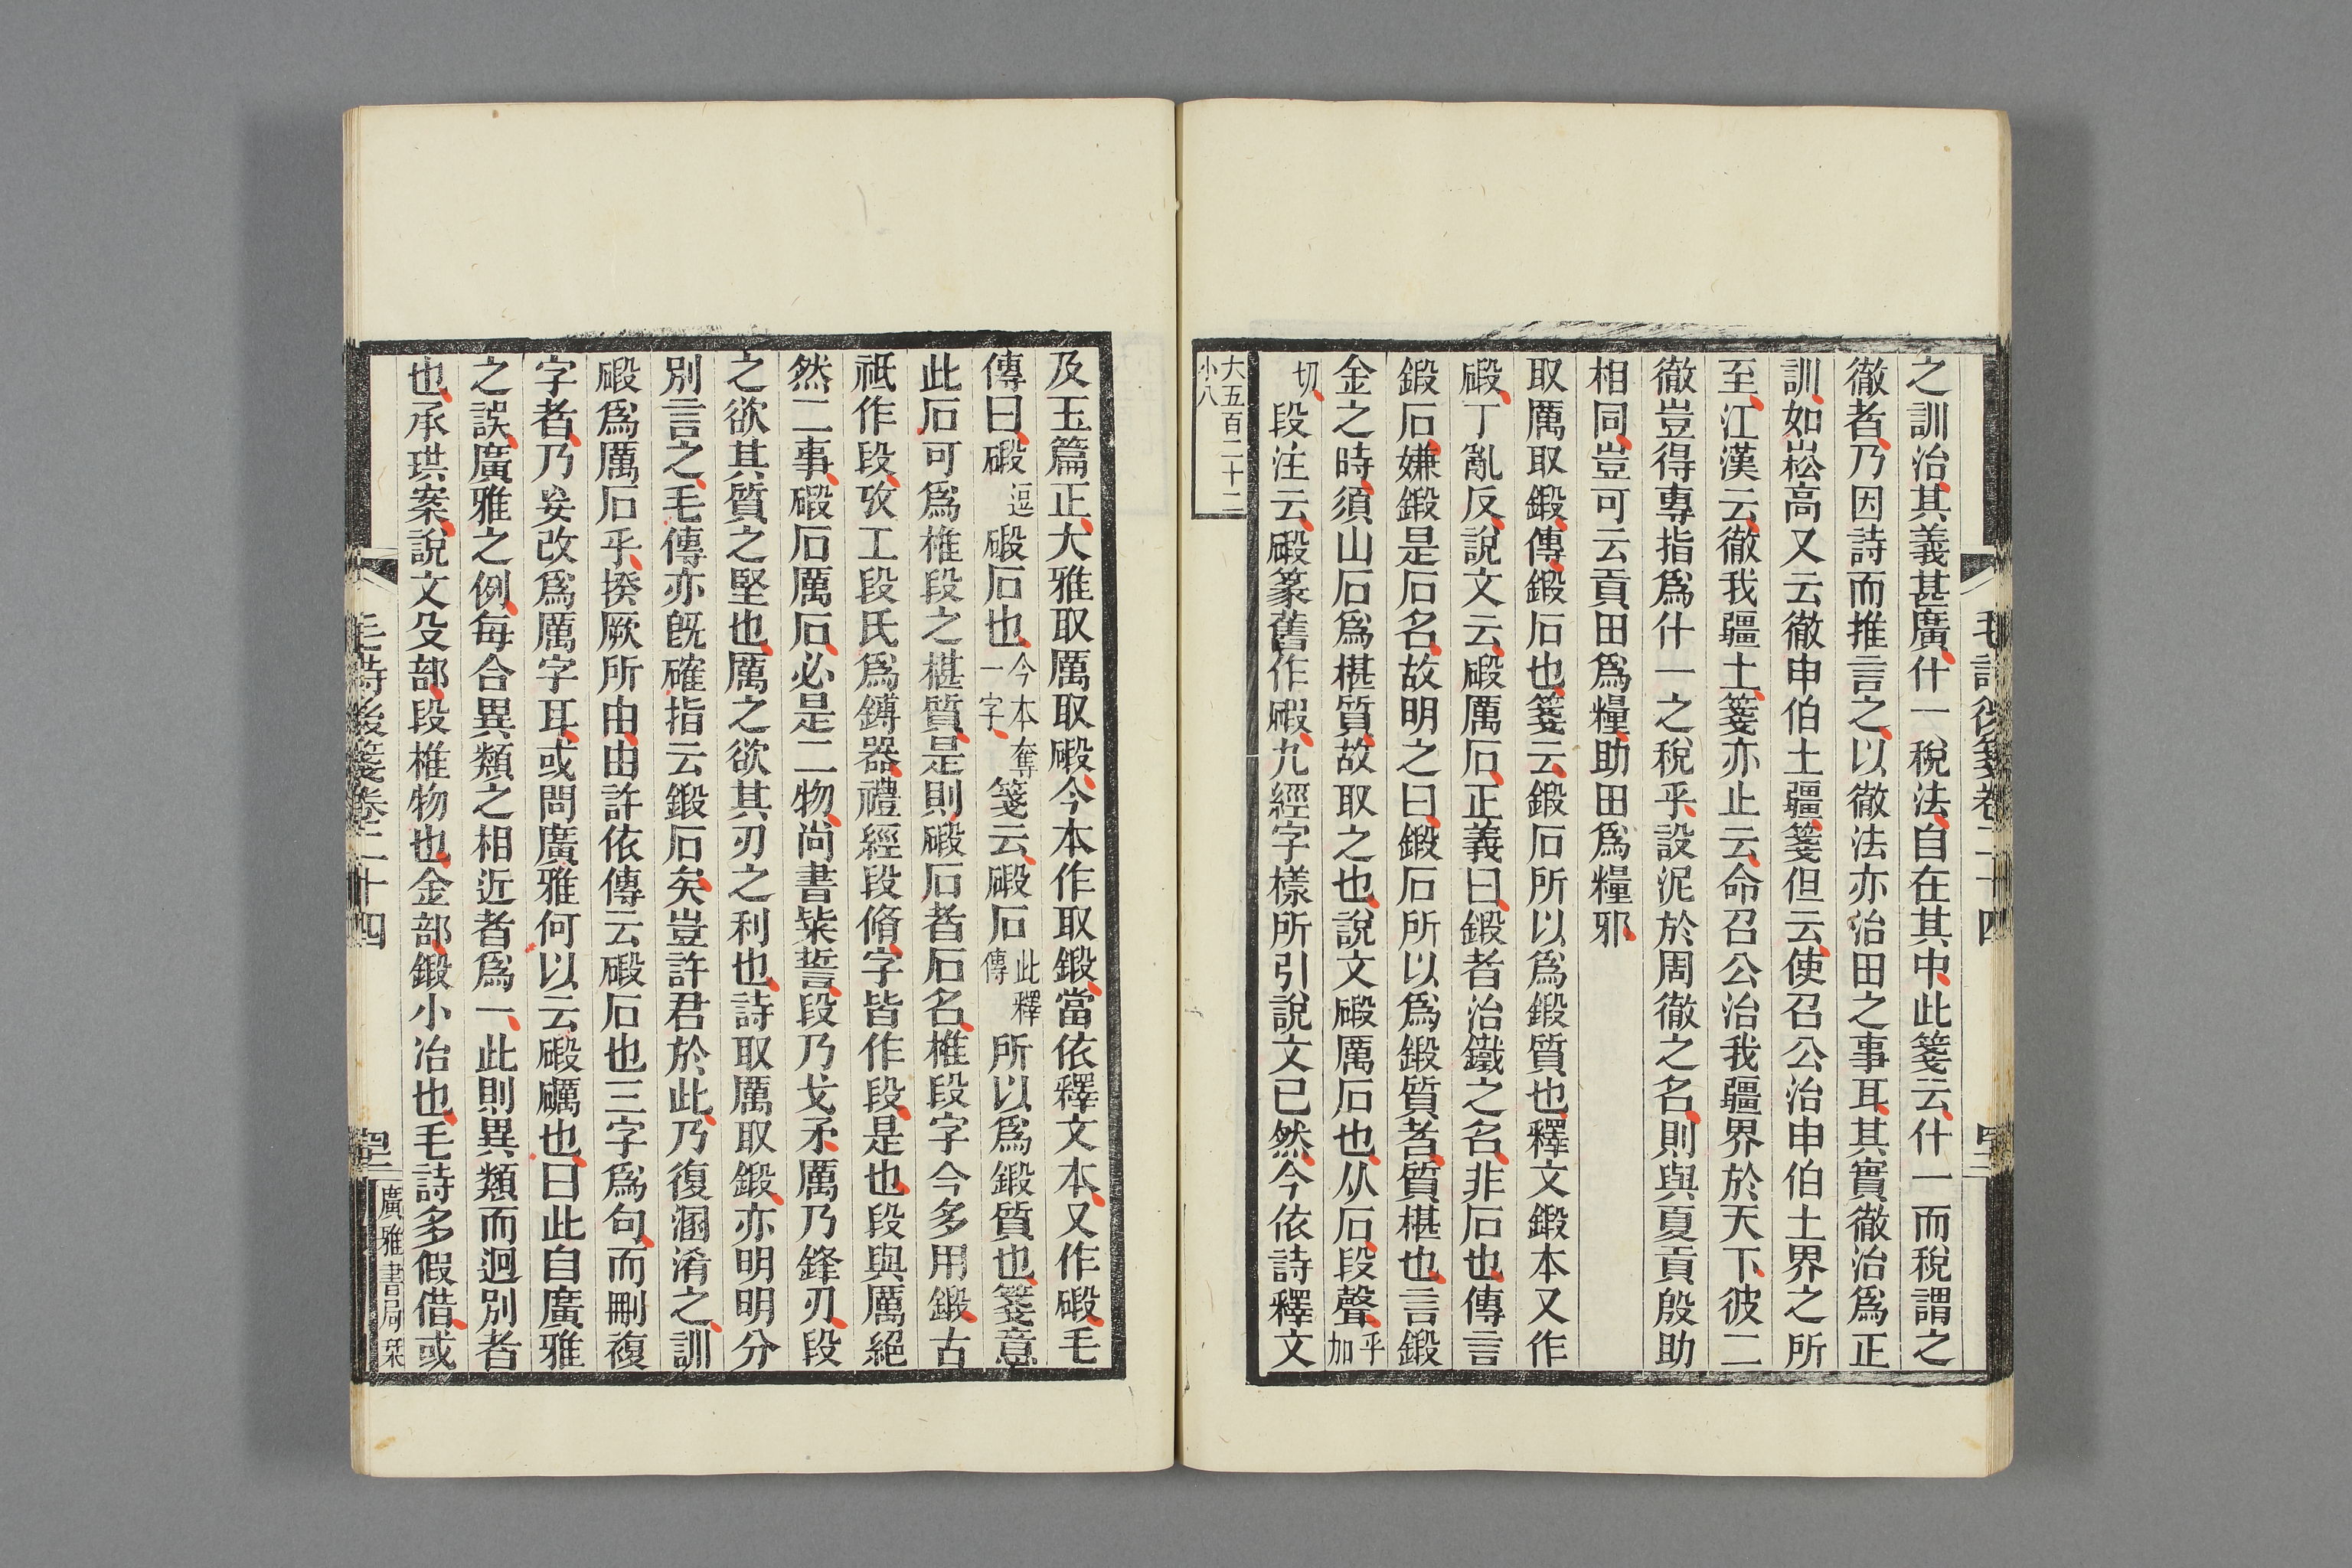 之訓治其義甚廣什一稅法自在其中此箋云什一而稅謂之
徹者乃因詩而推言之以徹法亦治田之事耳其實徹治爲正
訓如崧高又云徹申伯土疆箋但云使召公治申伯土界之所
至江漢云徹我疆土箋亦止云命召公治我疆界於天下彼二
徹豈得專指爲什一之稅乎設泥於周徹之名則與夏貢殷助
相同豈可云貢田爲糧助田爲糧邪
取厲取鍛傳鍛石也箋云鍛石所以爲鍛質也釋文鍛本又作
碫丁亂反說文云碫厲石正義曰鍛者治鐵之名非石也傳言
鍛石嫌鍛是石名故明之曰鍛石所以爲鍛質者質椹也言鍛
金之時須山石爲椹質故取之也說文碫厲石也从石段聲乎加
切段注云碫篆舊作碬九經字樣所引說文已然今依詩釋文
大五百二十二
小八
毛詩後箋卷二十四
及玉篇正大雅取厲取碫今本作取鍛當依釋文本又作碫毛
傳曰碫逗碫石也今本奪一字箋云碫石此釋傳所以爲鍛質也箋意
此石可爲椎段之椹質是則碫石者石名椎段字今多用鍛古
祇作段攷工段氏爲鎛器禮經段脩字皆作段是也段與厲絕
然二事碫石厲石必是二物尚書粊誓段乃戈矛厲乃鋒刃段
之欲其質之堅也厲之欲其刃之利也詩取厲取鍛亦明明分
別言之毛傳亦既確指云鍛石矣豈許君於此乃復溷淆之訓
碫爲厲石乎揆厥所由由許依傳云碫石也三字爲句而刪複
字者乃妄改爲厲字耳或問廣雅何以云碫礪也曰此自廣雅
之誤廣雅之例每合異類之相近者爲一此則異類而迥別者
也承珙案說文殳部段椎物也金部鍛小冶也毛詩多假借或
毛詩後箋卷二十四
廣雅書局栞